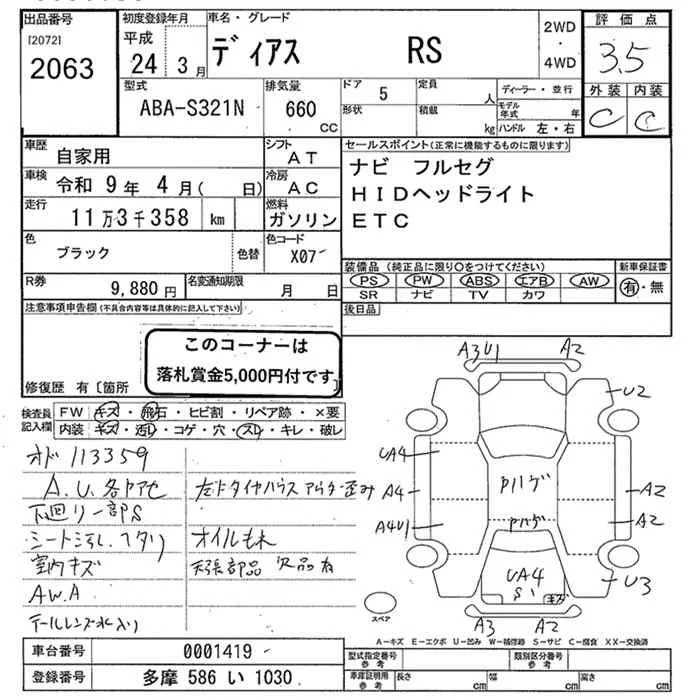 出品番号 初度登録年月 車名・グレード 2WD ・ 4WD 評価点
[2072] 2063
平成 24年 3月
ディアス RS
3.5
型式 排気量 ドア 5 定員 人 ディーラー・並行 外装 内装
ABA-S321N 660 CC 形状 積載 kg モデル年式 年 ハンドル 左・右 C C
車歴 自家用 シフト AT
セールスポイント(正常に機能するものに限ります)
車検 令和 9年 4月( 日) 冷房 AC
ナビ フルセグ
HIDヘッドライト
ETC
走行 11万3千358 km 燃料 ガソリン
色 ブラック 色替 色コード X07
装備品(純正品に限り○をつけてください) 新車保証書
PS PW ABS エアB AW 有・無
SR ナビ TV カワ
R券 9,880円 名変通知期限 月 日
注意事項申告欄(不具合内容等は具体的に記入して下さい) 後日品
このコーナーは
落札賞金5,000円付です
修復歴 有〔箇所
検査員記入欄 FW キズ・飛石・ヒビ割・リペア跡・×要
内装 キズ・汚レ・コゲ・穴・スレ・キレ・破レ
オド 113359
A.U.各ｹｱｾ 左ﾘﾔタイヤハウス アウター歪み
下回リ一部S
シート汚レ.ヘタリ オイルもれ
室内キズ 天張部品 欠品有
A.W.A
テールレンズ水入リ
A3U1 A2
U2
UA4
A4 Pハゲ A2
A4U1 Pハゲ A2
UA4 S1 キズ U3
A3 A2
スペア
A-キズ E-エクボ U-凹み W-補修跡 S-サビ C-腐食 XX-交換済
車台番号 0001419
型式指定番号 参考 類別区分番号 参考
登録番号 多摩 586 い 1030
車庫証明用 参考 長さ cm 幅 cm 高さ cm